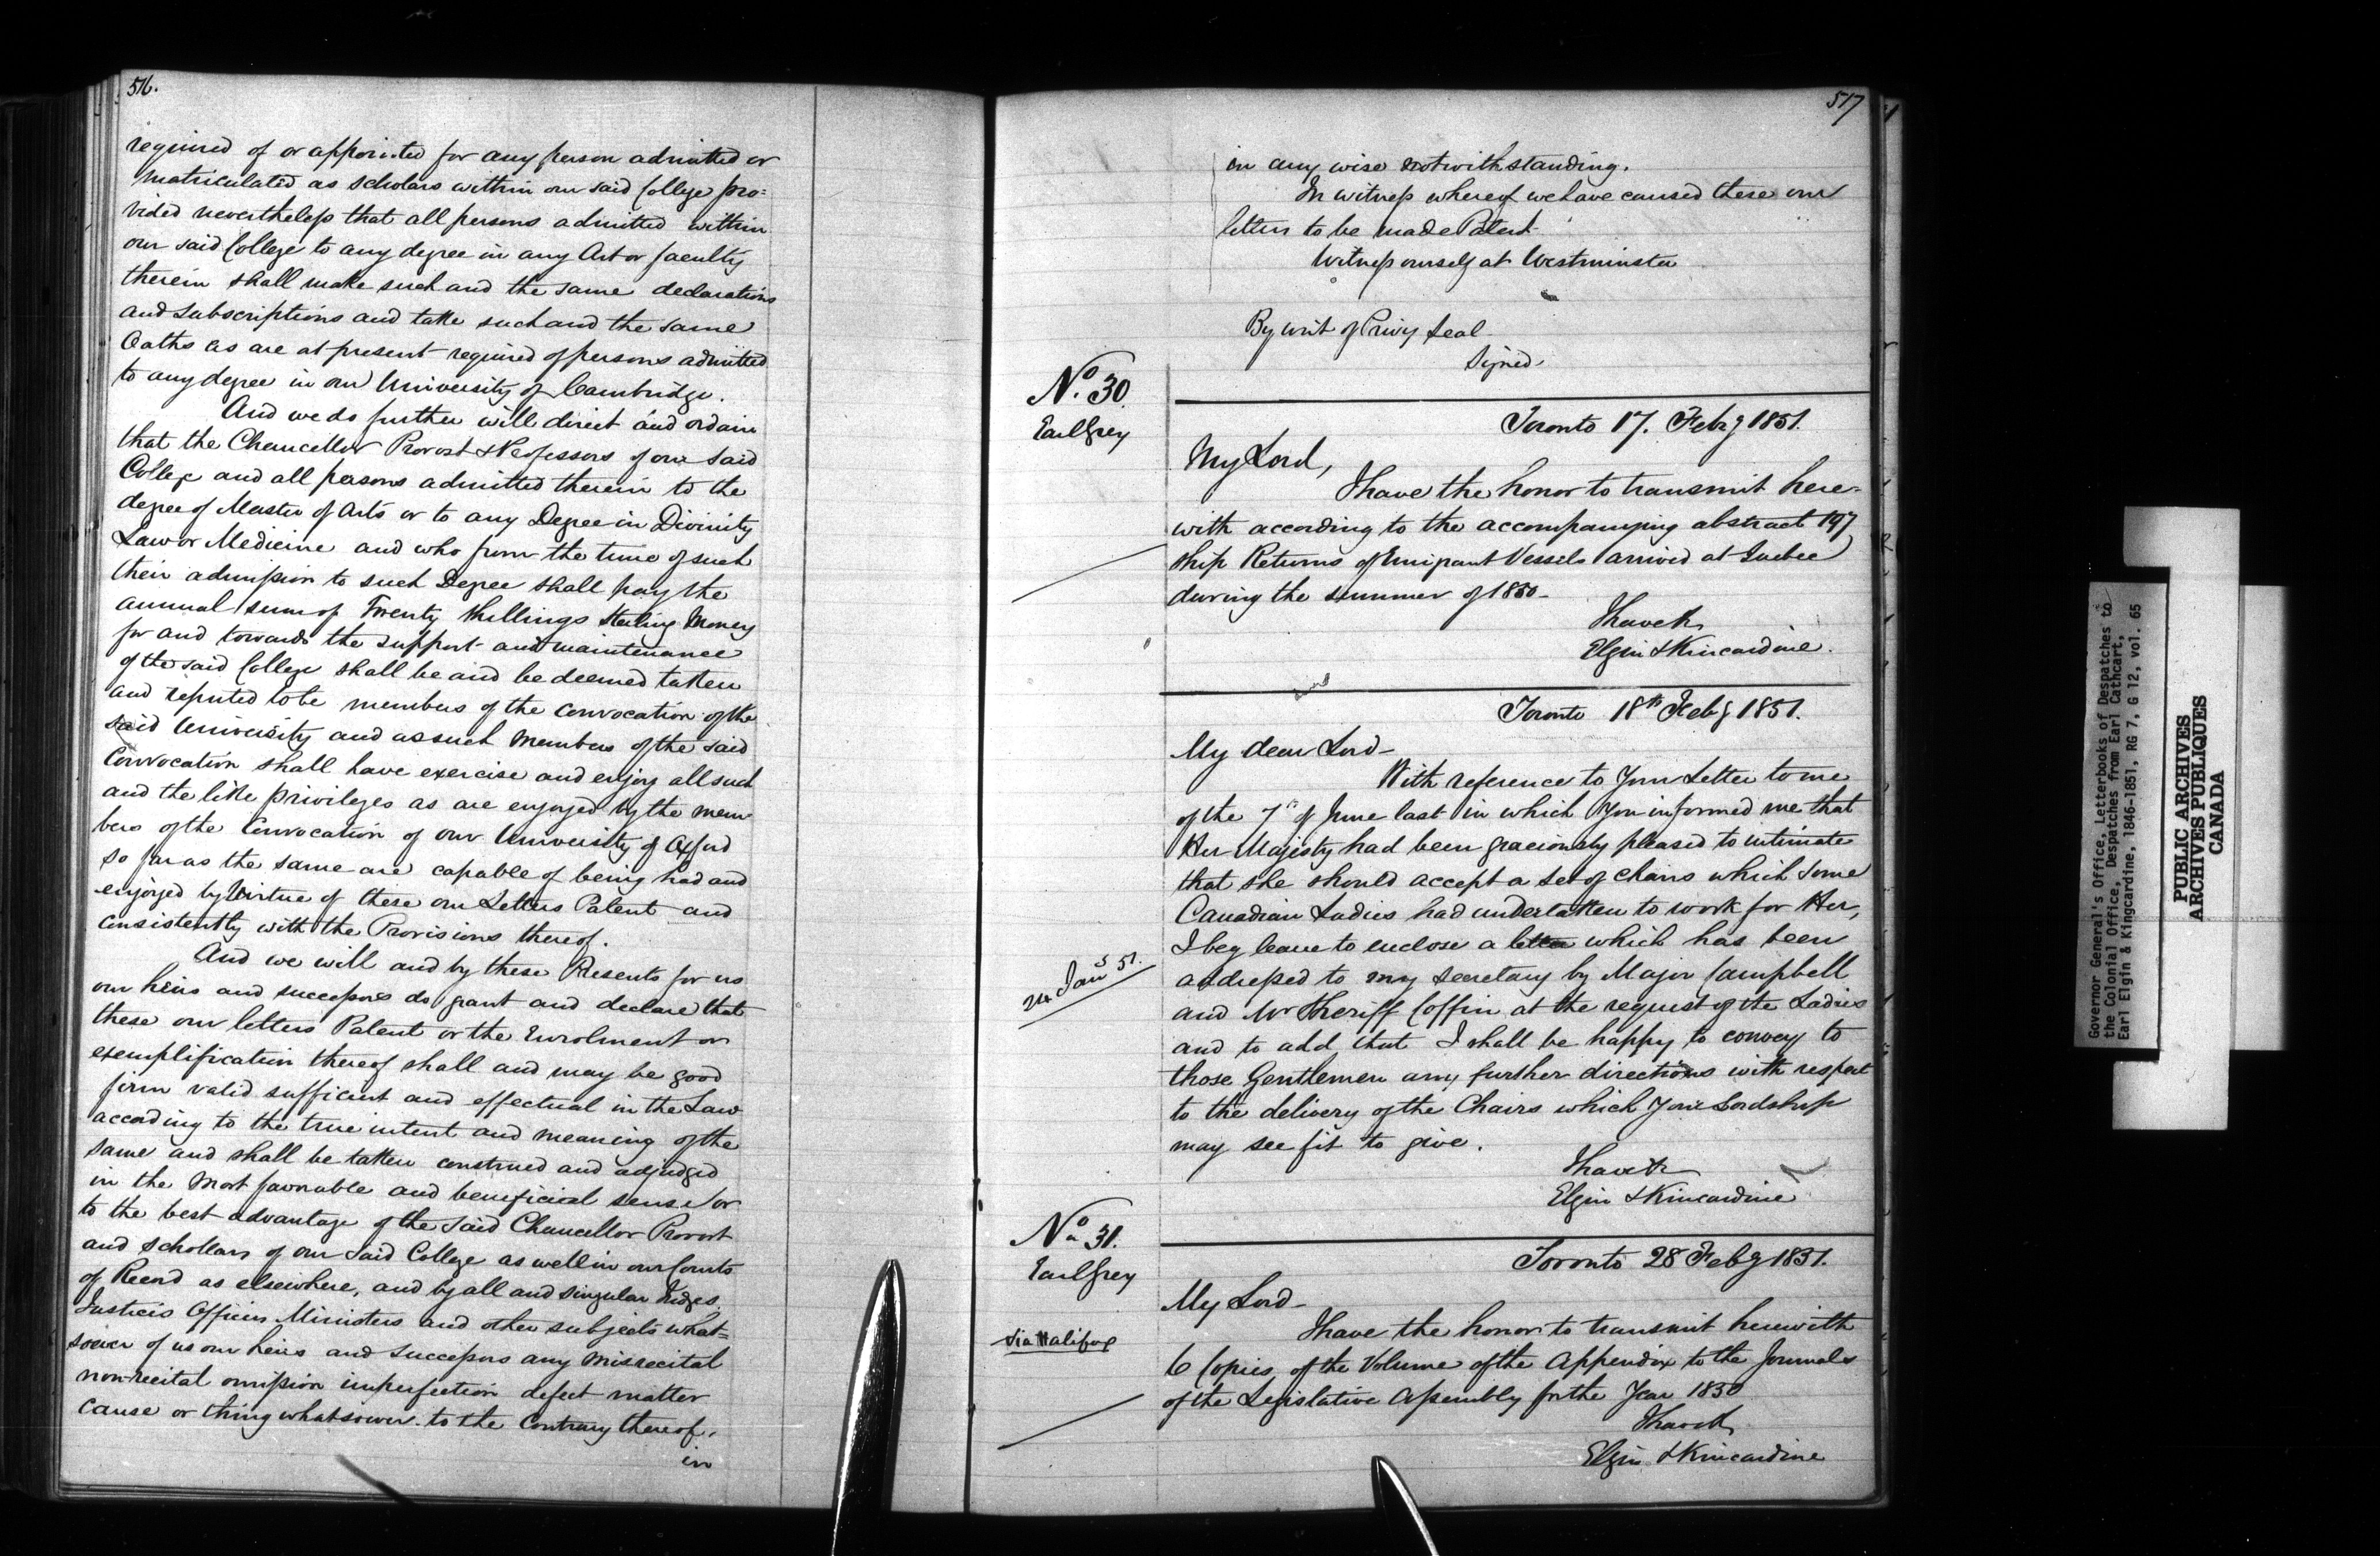 516.
required of or appointed for any person admitted or
matriculated as scholars within our said College pro=
vided nevertheless that all persons admitted within
our said College to any degree in any Art or faculty
therein shall make such and the same declarations
and Subscriptions and take such and the same
Oaths as are at present required of persons admitted
to any degree in our University of Cambridge.
And we do further will direct and ordain
that the Chancellor Provost & Professors of our said
College and all persons admitted therein to the
degree of Master of Arts or to any Degree in Divinity
Law or Medicine and who from the time of such
their admission to such Degree shall pay the
annual sum of Twenty Shillings Sterling Money
for and towards the support and maintenance
of the said College shall be and be deemed taken
and reputed to be members of the Convocation of the
said University and as such Members of the said
Convocation shall have exercise and enjoy all such
and the like privileges as are enjoyed by the mem-
bers of the Convocation of our University of Oxford
so far as the same are capable of being had and
enjoyed by Virtue of these our Letters Patent and
consistently with the Provisions thereof.
And we will and by these Presents for us
our heirs and successors do grant and declare that
these our letters Patent or the Enrolment or
exemplification thereof shall and may be good
firm valid sufficient and effectual in the Law
according to the true intent and meaning of the
same and shall be taken construed and adjudged
in the most favorable and beneficial sense or
to the best advantage of the said Chancellor Provost
and Schollars of our said College as well in our Courts
of Record as elsewhere, and by all and singular Judges
Justices Officers Ministers and other subjects what=
soever of us our heirs and successors any misrecital
non-recital omission imperfection defect matter
cause or thing whatsoever to the Contrary thereof,
in
517
in any wise notwithstanding.
In witness whereof we have caused these our
letters to be made Patent
Witness ourself at Westminster
By writ of Privy Seal
Signed
No. 30.
Earl Grey
Toronto 17. Feby 1851.
My Lord,
I have the honor to transmit here-
with according to the accompanying abstract 197
Ship Returns of Emigrant Vessels arrived at Quebec
during the summer of 1850-
I have &c
Elgin & Kincardine.
Toronto 18th Feby 1851.
My dear Lord-
With reference to Your Letter to me
of the 7th of June last in which You informed me that
Her Majesty had been graciously pleased to intimate
that she should accept a set of chairs which some
Canadian Ladies had undertaken to work for Her,
I beg leave to enclose a letter which has been
24 Jany 51.
addressed to my Secretary by Major Campbell
and Mr Sheriff Coffin at the request of the Ladies
and to add that I shall be happy to convey to
those Gentlemen any further directions with respect
to the delivery of the Chairs which Your Lordship
may see fit to give.
I have &c
Elgin & Kincardine
No. 31.
Earl Grey
Toronto 28 Feby 1851.
My Lord-
via Halifax
I have the honor to transmit herewith
6 Copies of the Volume of the Appendix to the Journals
of the Legislative Assembly for the Year 1850
I have &c
Elgin & Kincardine
Governor General's Office, Letterbooks of Despatches to
the Colonial Office, Despatches from Earl Cathcart,
Earl Elgin & Kingcardine, 1846-1851, RG 7, G 12, vol. 65
PUBLIC ARCHIVES
ARCHIVES PUBLIQUES
CANADA